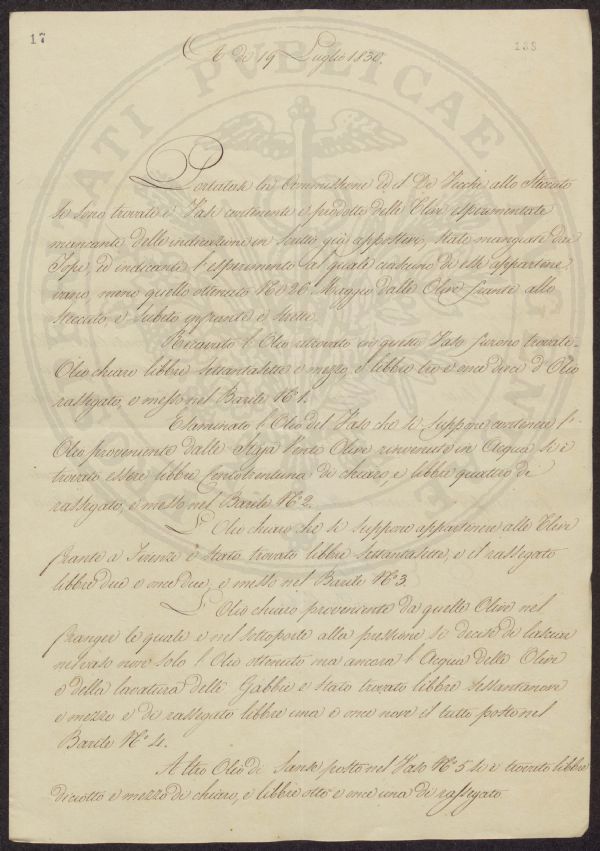 17
188
A dì 19 Luglio 1830.
Portatasi la Commissione ed il De Vecchi allo Stecuto
si sono trovati i Vasi contenente i prodotti delle Olive esperimentate
mancante delle indicazioni in scritto già appostevi, state mangiate dai
Topi, ed indicante l'esperimento al quale ciascuno di essi apparteneva
vano, meno quello ottenuto N° 26 Maggio dalle Olive frante allo
Steccuto, e subito infrante e strette.
Ricavato l'Olio ritrovato in questo Vaso furono trovate
Olio chiaro libbre sessantasette e mezzo, e libbre tre e once dieci d'Olio
rassegato, e messo nel Barile N° 1.
Esaminato l'Olio del Vaso che si suppone contenere l'
Olio proveniente dalle Staja Vento Olive rinvenute in Acqua, si è
trovato essere libbre Centotrentuna di chiaro, e libbre quattro di
rassegato, e messo nel Barile N° 2.
L'Olio chiaro che si suppone appartenere alle Olive
frante a Firenze è stato trovato libbre settantasette, e il rassegato
libbre due e once due, e messo nel Barile N° 3
L'Olio chiaro proveniente da quelle Olive nel
franger le quali e nel sottoporle alla pressione si decise di lasciar
nel vaso non solo l'Olio ottenuto ma ancora l'Acqua delle Olive
e della lavatura delle Gabbie è stato trovato libbre sessantanove
e mezzo e di rassegato libbre una e once nove il tutto posto nel
Barile N° 4.
Altro Olio di Sansa posto nel Vaso N° 5 si è trovato libbre
diciotto e mezzo di chiaro, e libbre otto e once una di rassegato